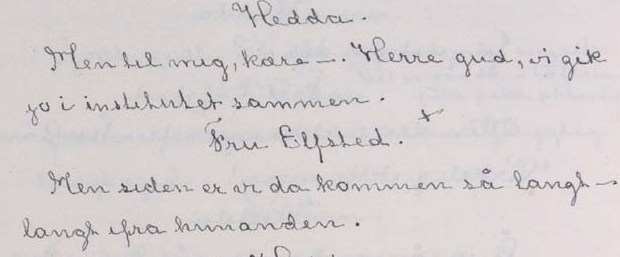 Hedda.
Men til mig, kære –. Herre gud, vi gik
jo i institutet sammen.
Fru Elfsted. +
Men siden er vi da kommen så langt –
langt ifra hinanden.